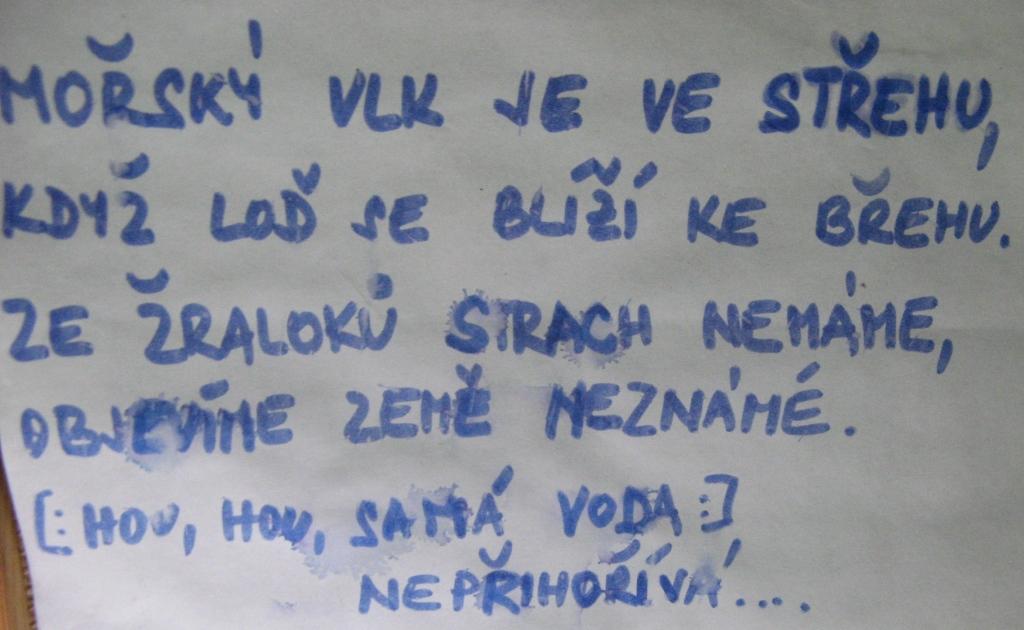 MOŘSKÝ VLK JE VE STŘEHU,
KDYŽ LOĎ SE BLÍŽÍ KE BŘEHU.
ZE ŽRALOKŮ STRACH NEMÁME,
OBJEVÍME ZEMĚ NEZNÁMÉ.
[: HOU, HOU, SAMÁ VODA :]
NEPŘIHOŘÍVÁ....